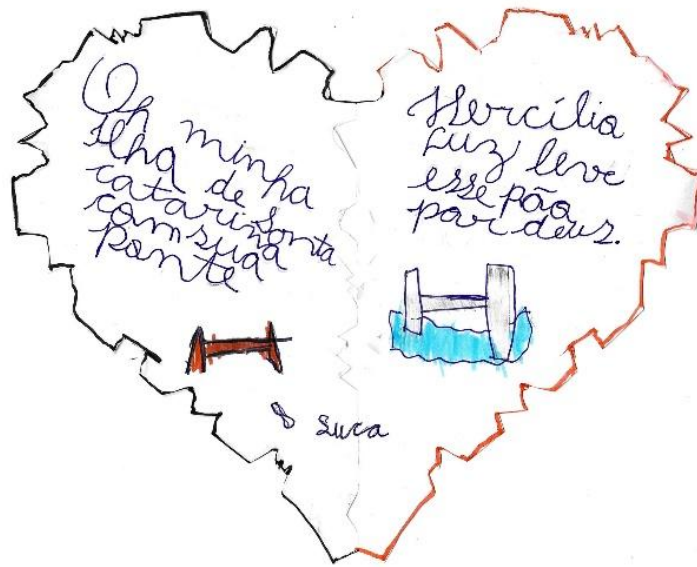 Oh minha
ilha de
catarina santa
com sua
Ponte
Hercília
Luz leve
esse pão
por deus.